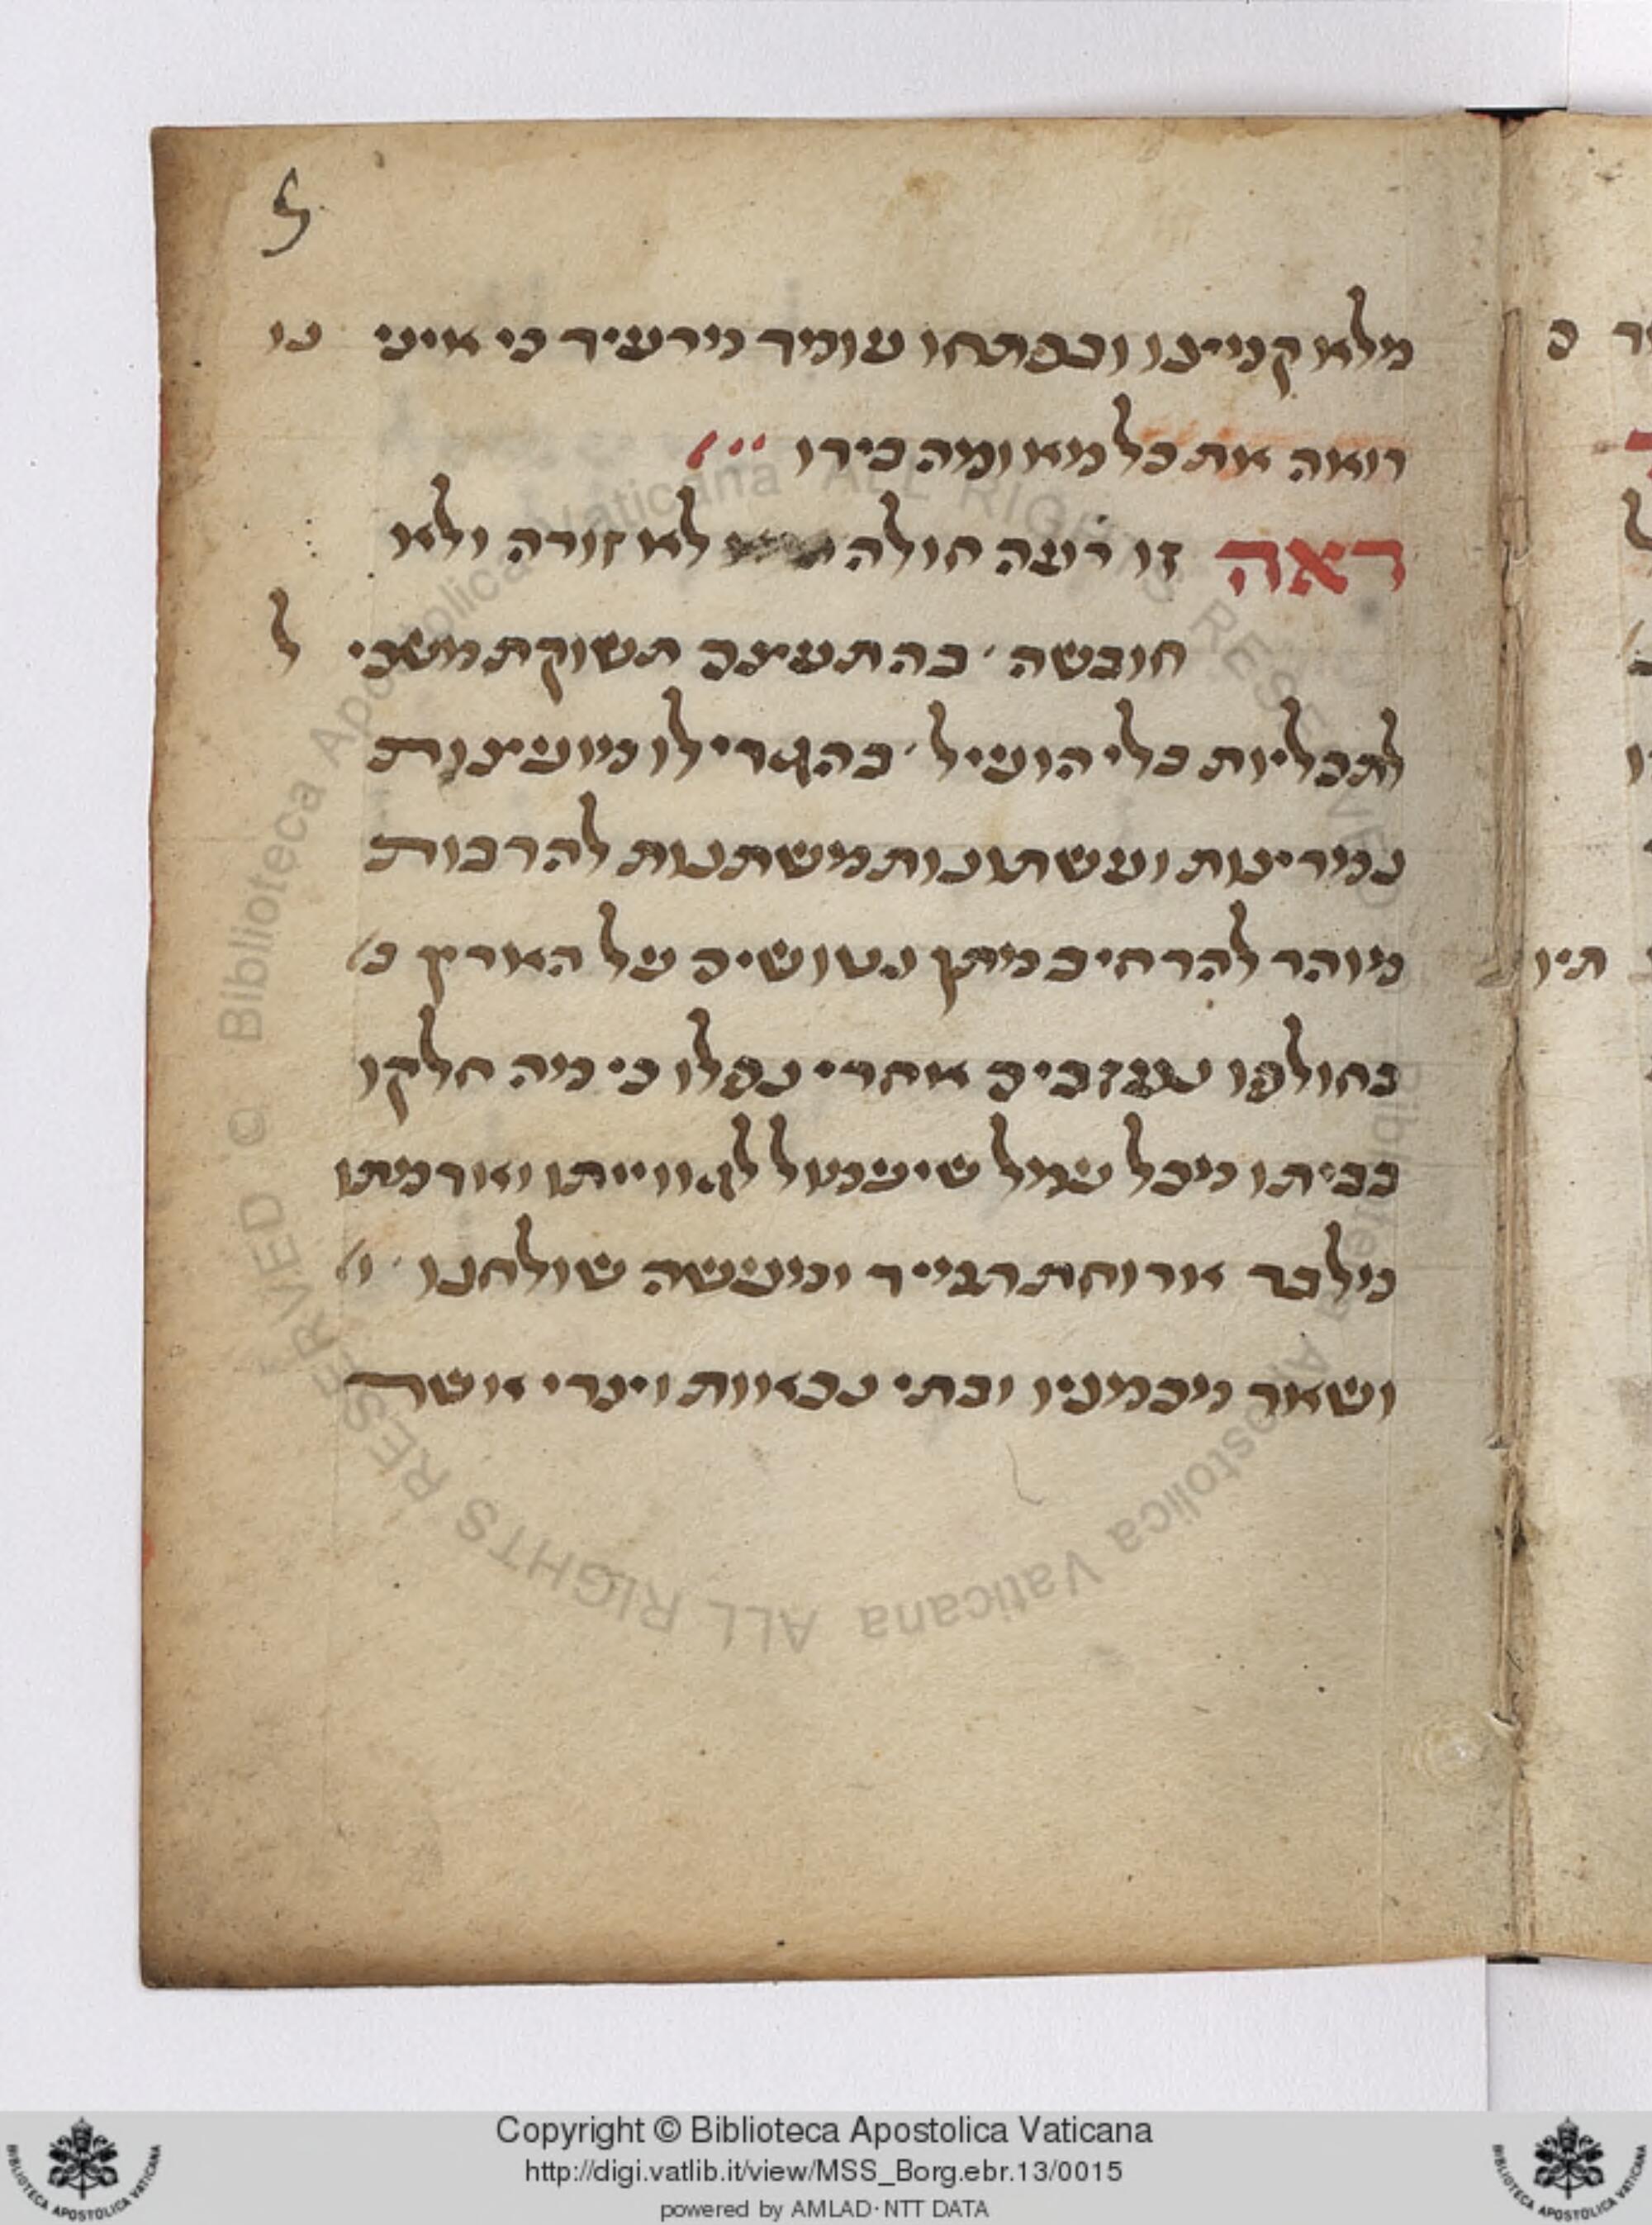 5
מלא קניינו ובפתחו עומד מרעיד כי איני נו
רואה את כל מאומה בידו
ראה זו רעה חולה לא זורה ולא
חובשה בהתענף תשוקת משכי ל
לתכליות כלי הועיל בהגדילו מועצות
נמרצות ועשתונות משתנות להרבות
מוהר להרחיב מתן נטושים על הארץ נ
בחולפו נעזבים אחרי נפלו כי מה חלקו
בביתו מכל עמל שיעמול לגווייתו ואדמתו
מלבד ארוחת רבייד ומעשה שולחנו
ושאר מכמניו ובתי נכאות ויגרי אושה
ר כ
תיו
© Biblioteca Apostolica Vaticana ALL RIGHTS RESERVED
Copyright © Biblioteca Apostolica Vaticana
http://digi.vatlib.it/view/MSS_Borg.ebr.13/0015
powered by AMLAD·NTT DATA
BIBLIOTECA APOSTOLICA VATICANA
BIBLIOTECA APOSTOLICA VATICANA